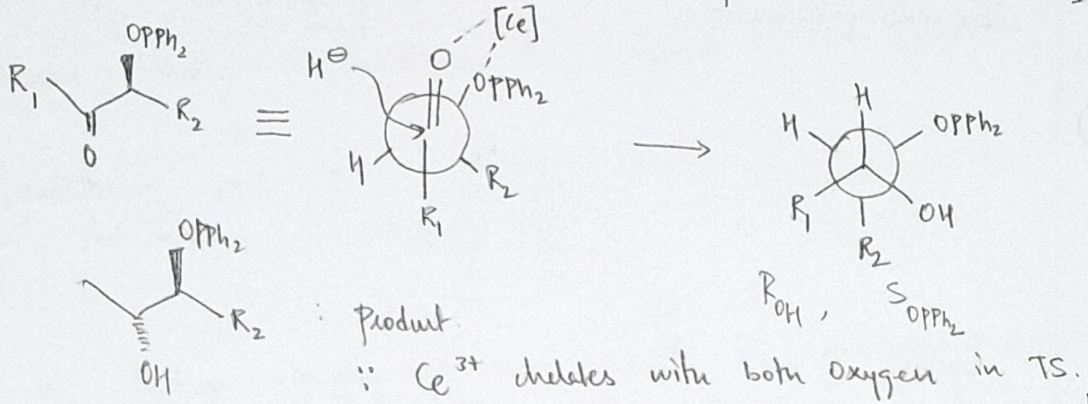 OPPh₂
R₁
R₂
O
≡
H⊖
O
[Ce]
OPPh₂
H
R₂
R₁
→
H
H
OPPh₂
R₁
OH
R₂
OPPh₂
R₂
OH
: Product
R_OH , S_OPPh₂
∵ Ce³⁺ chelates with both oxygen in TS.